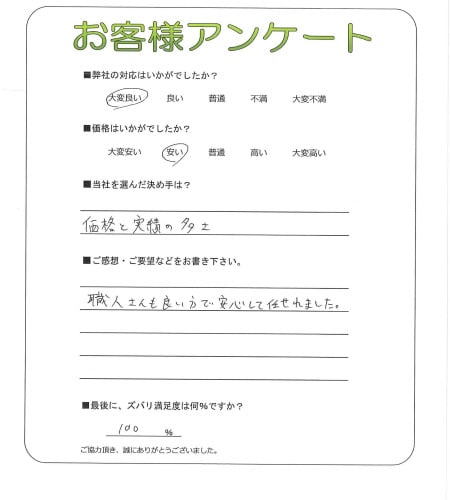 お客様アンケート
■弊社の対応はいかがでしたか？
大変良い 良い 普通 不満 大変不満
■価格はいかがでしたか？
大変安い 安い 普通 高い 大変高い
■当社を選んだ決め手は？
価格と実績の多さ
■ご感想・ご要望などをお書き下さい。
職人さんも良い方で安心して任せれました。
■最後に、ズバリ満足度は何%ですか？
100 %
ご協力頂き、誠にありがとうございました。